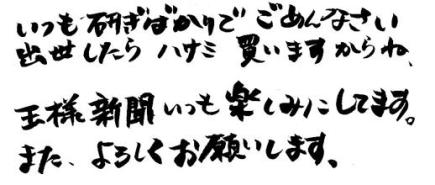 いつも研ぎばかりでごめんなさい
出世したら ハサミ 買いますからね、
王様新聞いつも楽しみにしてます。
また、よろしくお願いします、